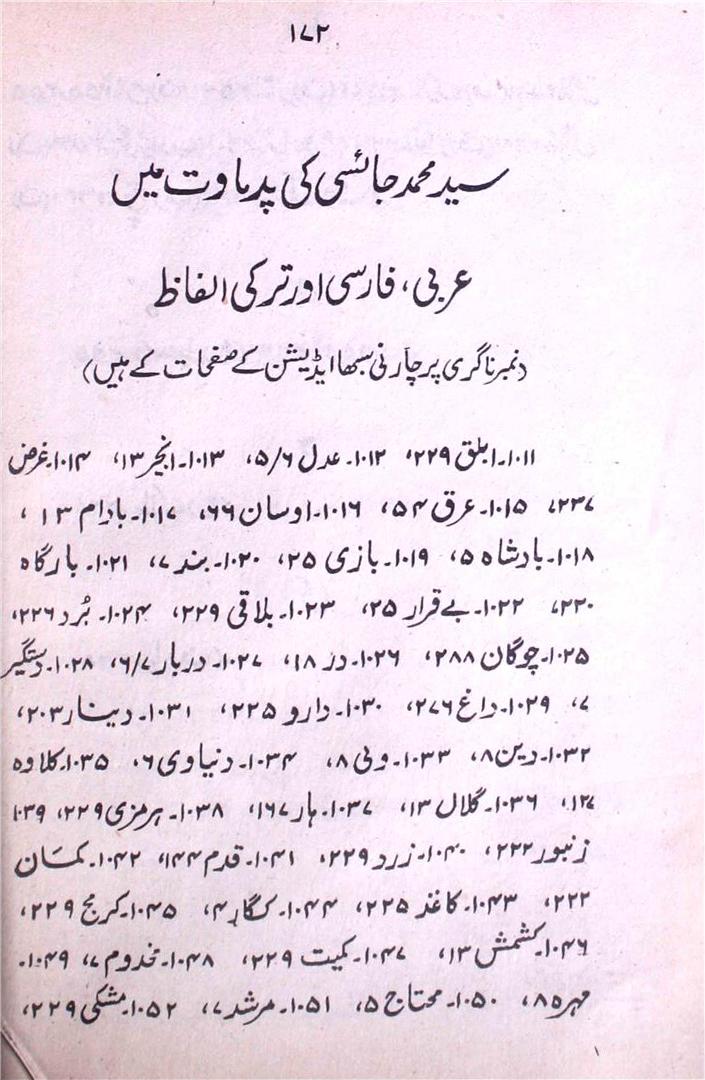 ۱۷۲
سید محمد جائسی کی پدماوت میں
عربی، فارسی اور ترکی الفاظ
(نمبر ناگری پرچارنی سبھا ایڈیشن کے صفحات کے ہیں)
۱۰۱۱۔ ابلق ۲۲۹، ۱۰۱۲۔ عدل ۵/۶، ۱۰۱۳۔ انجیر ۱۳، ۱۰۱۴۔ غرض
۲۳۷، ۱۰۱۵۔ عرق ۵۴، ۱۰۱۶۔ اوسان ۶۶، ۱۰۱۷۔ بادام ۱۳،
۱۰۱۸۔ بادشاہ ۵، ۱۰۱۹۔ بازی ۲۵، ۱۰۲۰۔ بند ۷، ۱۰۲۱۔ بارگاہ
۲۲۰، ۱۰۲۲۔ بے قرار ۲۵، ۱۰۲۳۔ بلاقی ۲۲۹، ۱۰۲۴۔ بُرد ۲۲۶،
۱۰۲۵۔ چوگان ۲۸۸، ۱۰۲۶۔ در ۱۸، ۱۰۲۷۔ دربار ۶/۷، ۱۰۲۸۔ دستگیر
۷، ۱۰۲۹۔ داغ ۲۷۶، ۱۰۳۰۔ دارو ۲۲۵، ۱۰۳۱۔ دینار ۲۰۳،
۱۰۳۲۔ دین ۸، ۱۰۳۳۔ ونی ۸، ۱۰۳۴۔ دنیاوی ۶، ۱۰۳۵۔ کلاوہ
۱۲، ۱۰۳۶۔ گلال ۱۳، ۱۰۳۷۔ ہار ۱۶۷، ۱۰۳۸۔ ہرمزی ۲۲۹، ۱۰۳۹
زنبور ۲۲۲، ۱۰۴۰۔ زرد ۲۲۹، ۱۰۴۱۔ قدم ۱۴۴، ۱۰۴۲۔ کمان
۲۲۲، ۱۰۴۳۔ کاغذ ۲۲۵، ۱۰۴۴۔ ۴، ۱۰۴۵۔ ۲۲۹،
۱۰۴۶۔ کشمش ۱۳، ۱۰۴۷۔ کمیت ۲۲۹، ۱۰۴۸۔ مخدوم ۷، ۱۰۴۹۔
مہرہ ۸۵، ۱۰۵۰۔ محتاج ۵، ۱۰۵۱۔ مرشد ۷، ۱۰۵۲۔ مشکی ۲۲۹،